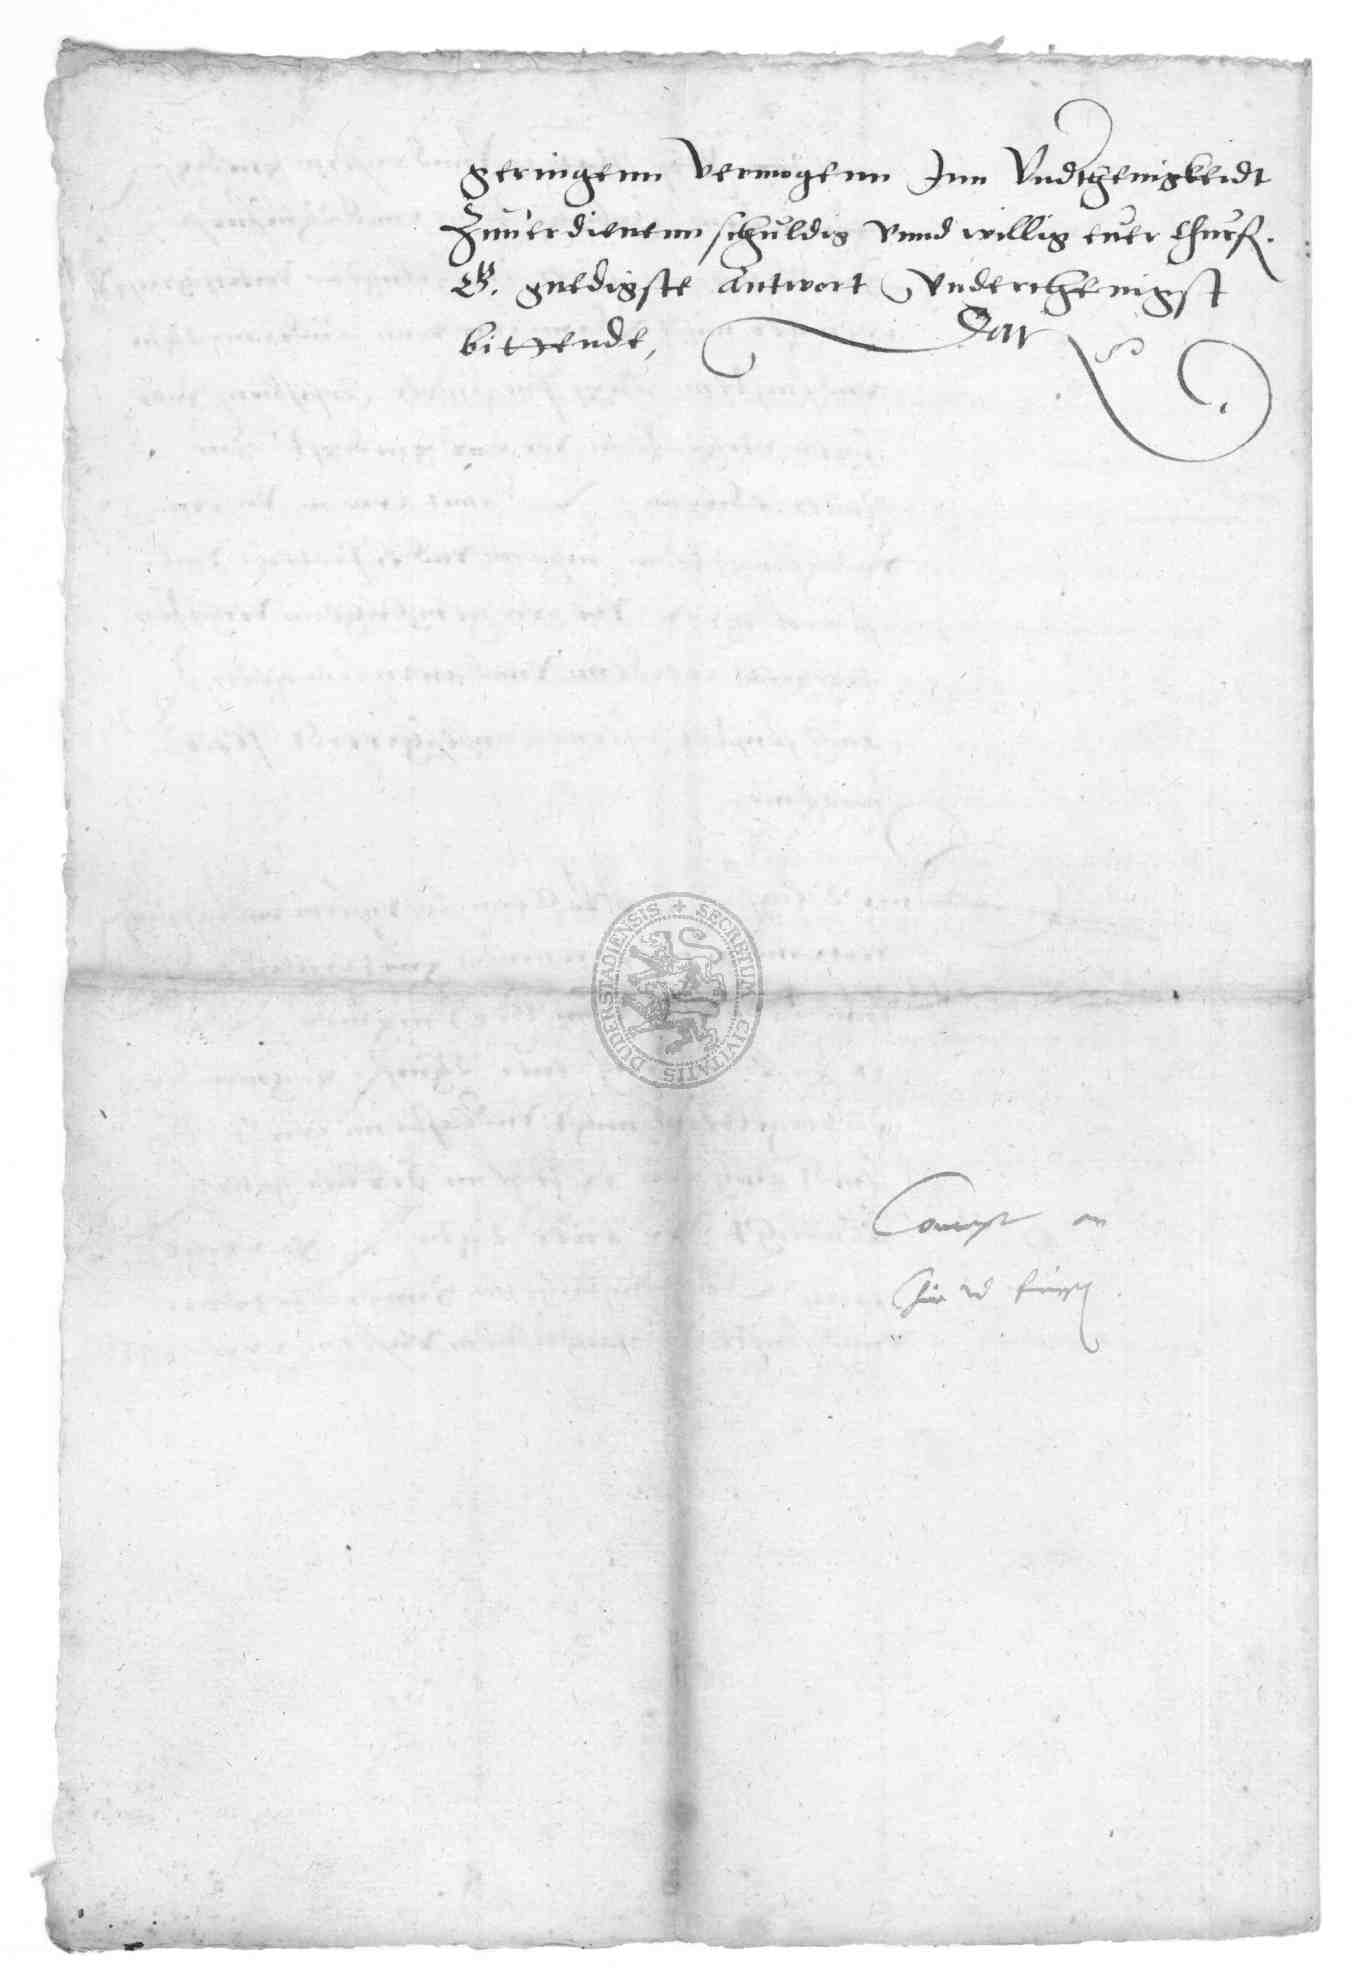 geringenn vermogenn Inn Vndthenigkeidt
Zuuerdienenn schuldig vnnd willig euer Churf.
G. gnedigste Antwort Vnderthenigst
bittende,
Dat
SECRETUM CIVITATIS DUDERSTADIENSIS
Concept an